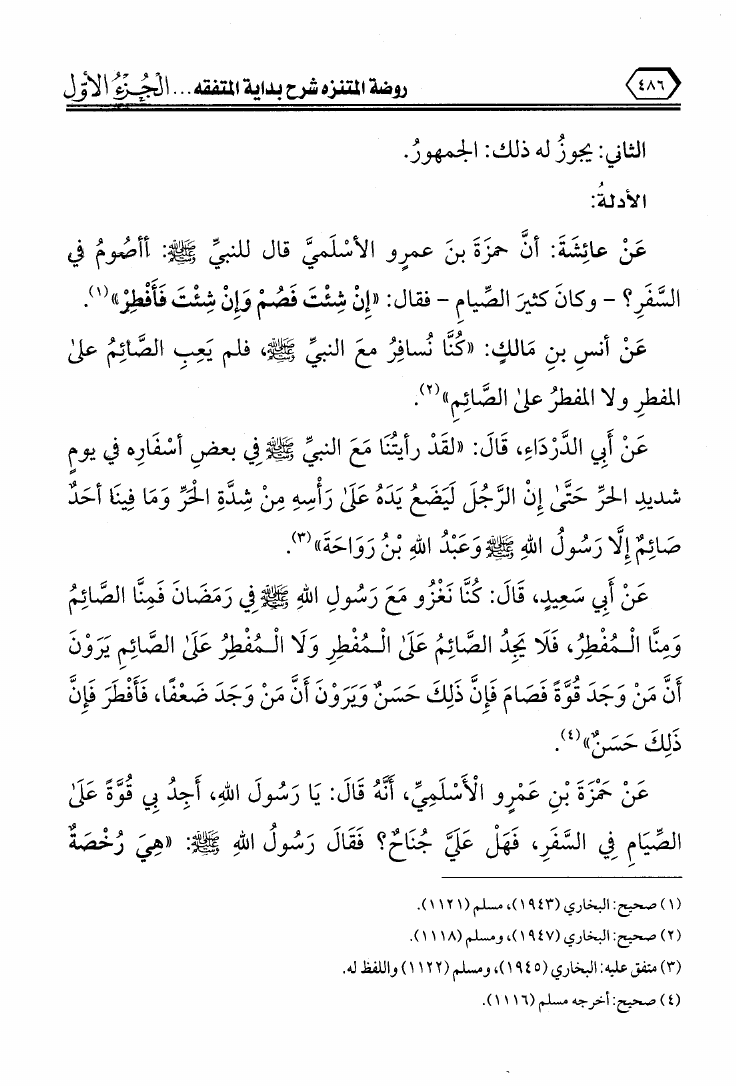 ٤٨٦ روضة المتنزه شرح بداية المتفقه ... الْجُزْءُ الأوَّل
الثاني: يجوزُ له ذلك: الجمهورُ.
الأدلةُ:
عَنْ عائِشَةَ: أنَّ حمزَةَ بنَ عمرٍو الأسْلَميَّ قال للنبيِّ ﷺ: أأصُومُ في
السَّفَرِ؟ - وكانَ كثيرَ الصِّيامِ - فقال: «إنْ شِئْتَ فَصُمْ وَإنْ شِئْتَ فَأَفْطِرْ»(١).
عَنْ أنسِ بنِ مَالكٍ: «كُنَّا نُسافِرُ معَ النبيِّ ﷺ، فلم يَعِبِ الصَّائِمُ علىٰ
المفطرِ ولا المفطرُ علىٰ الصَّائِمِ»(٢).
عَنْ أَبِي الدَّرْدَاءِ، قَالَ: «لقَدْ رأيتُنَا مَعَ النبيِّ ﷺ فِي بعضِ أسْفَارِه في يومٍ
شديدِ الحرِّ حَتَّىٰ إِنْ الرَّجُلَ لَيَضَعُ يَدَهُ عَلَىٰ رَأْسِهِ مِنْ شِدَّةِ الْحَرِّ وَمَا فِينَا أحَدٌ
صَائِمٌ إِلَّا رَسُولُ اللهِ ﷺ وَعَبْدُ اللهِ بْنُ رَوَاحَةَ»(٣).
عَنْ أَبِي سَعِيدٍ، قَالَ: كُنَّا نَغْزُو مَعَ رَسُولِ اللهِ ﷺ فِي رَمَضَانَ فَمِنَّا الصَّائِمُ
وَمِنَّا الْمُفْطِرُ، فَلَا يَجِدُ الصَّائِمُ عَلَىٰ الْمُفْطِرِ وَلَا الْمُفْطِرُ عَلَىٰ الصَّائِمِ يَرَوْنَ
أَنَّ مَنْ وَجَدَ قُوَّةً فَصَامَ فَإِنَّ ذَلِكَ حَسَنٌ وَيَرَوْنَ أَنَّ مَنْ وَجَدَ ضَعْفًا، فَأَفْطَرَ فَإِنَّ
ذَلِكَ حَسَنٌ»(٤).
عَنْ حَمْزَةَ بْنِ عَمْرٍو الْأَسْلَمِيِّ، أَنَّهُ قَالَ: يَا رَسُولَ اللهِ، أَجِدُ بِي قُوَّةً عَلَىٰ
الصِّيَامِ فِي السَّفَرِ، فَهَلْ عَلَيَّ جُنَاحٌ؟ فَقَالَ رَسُولُ اللهِ ﷺ: «هِيَ رُخْصَةٌ
(١) صحيح: البخاري (١٩٤٣)، مسلم (١١٢١).
(٢) صحيح: البخاري (١٩٤٧)، ومسلم (١١١٨).
(٣) متفق عليه: البخاري (١٩٤٥)، ومسلم (١١٢٢) واللفظ له.
(٤) صحيح: أخرجه مسلم (١١١٦).